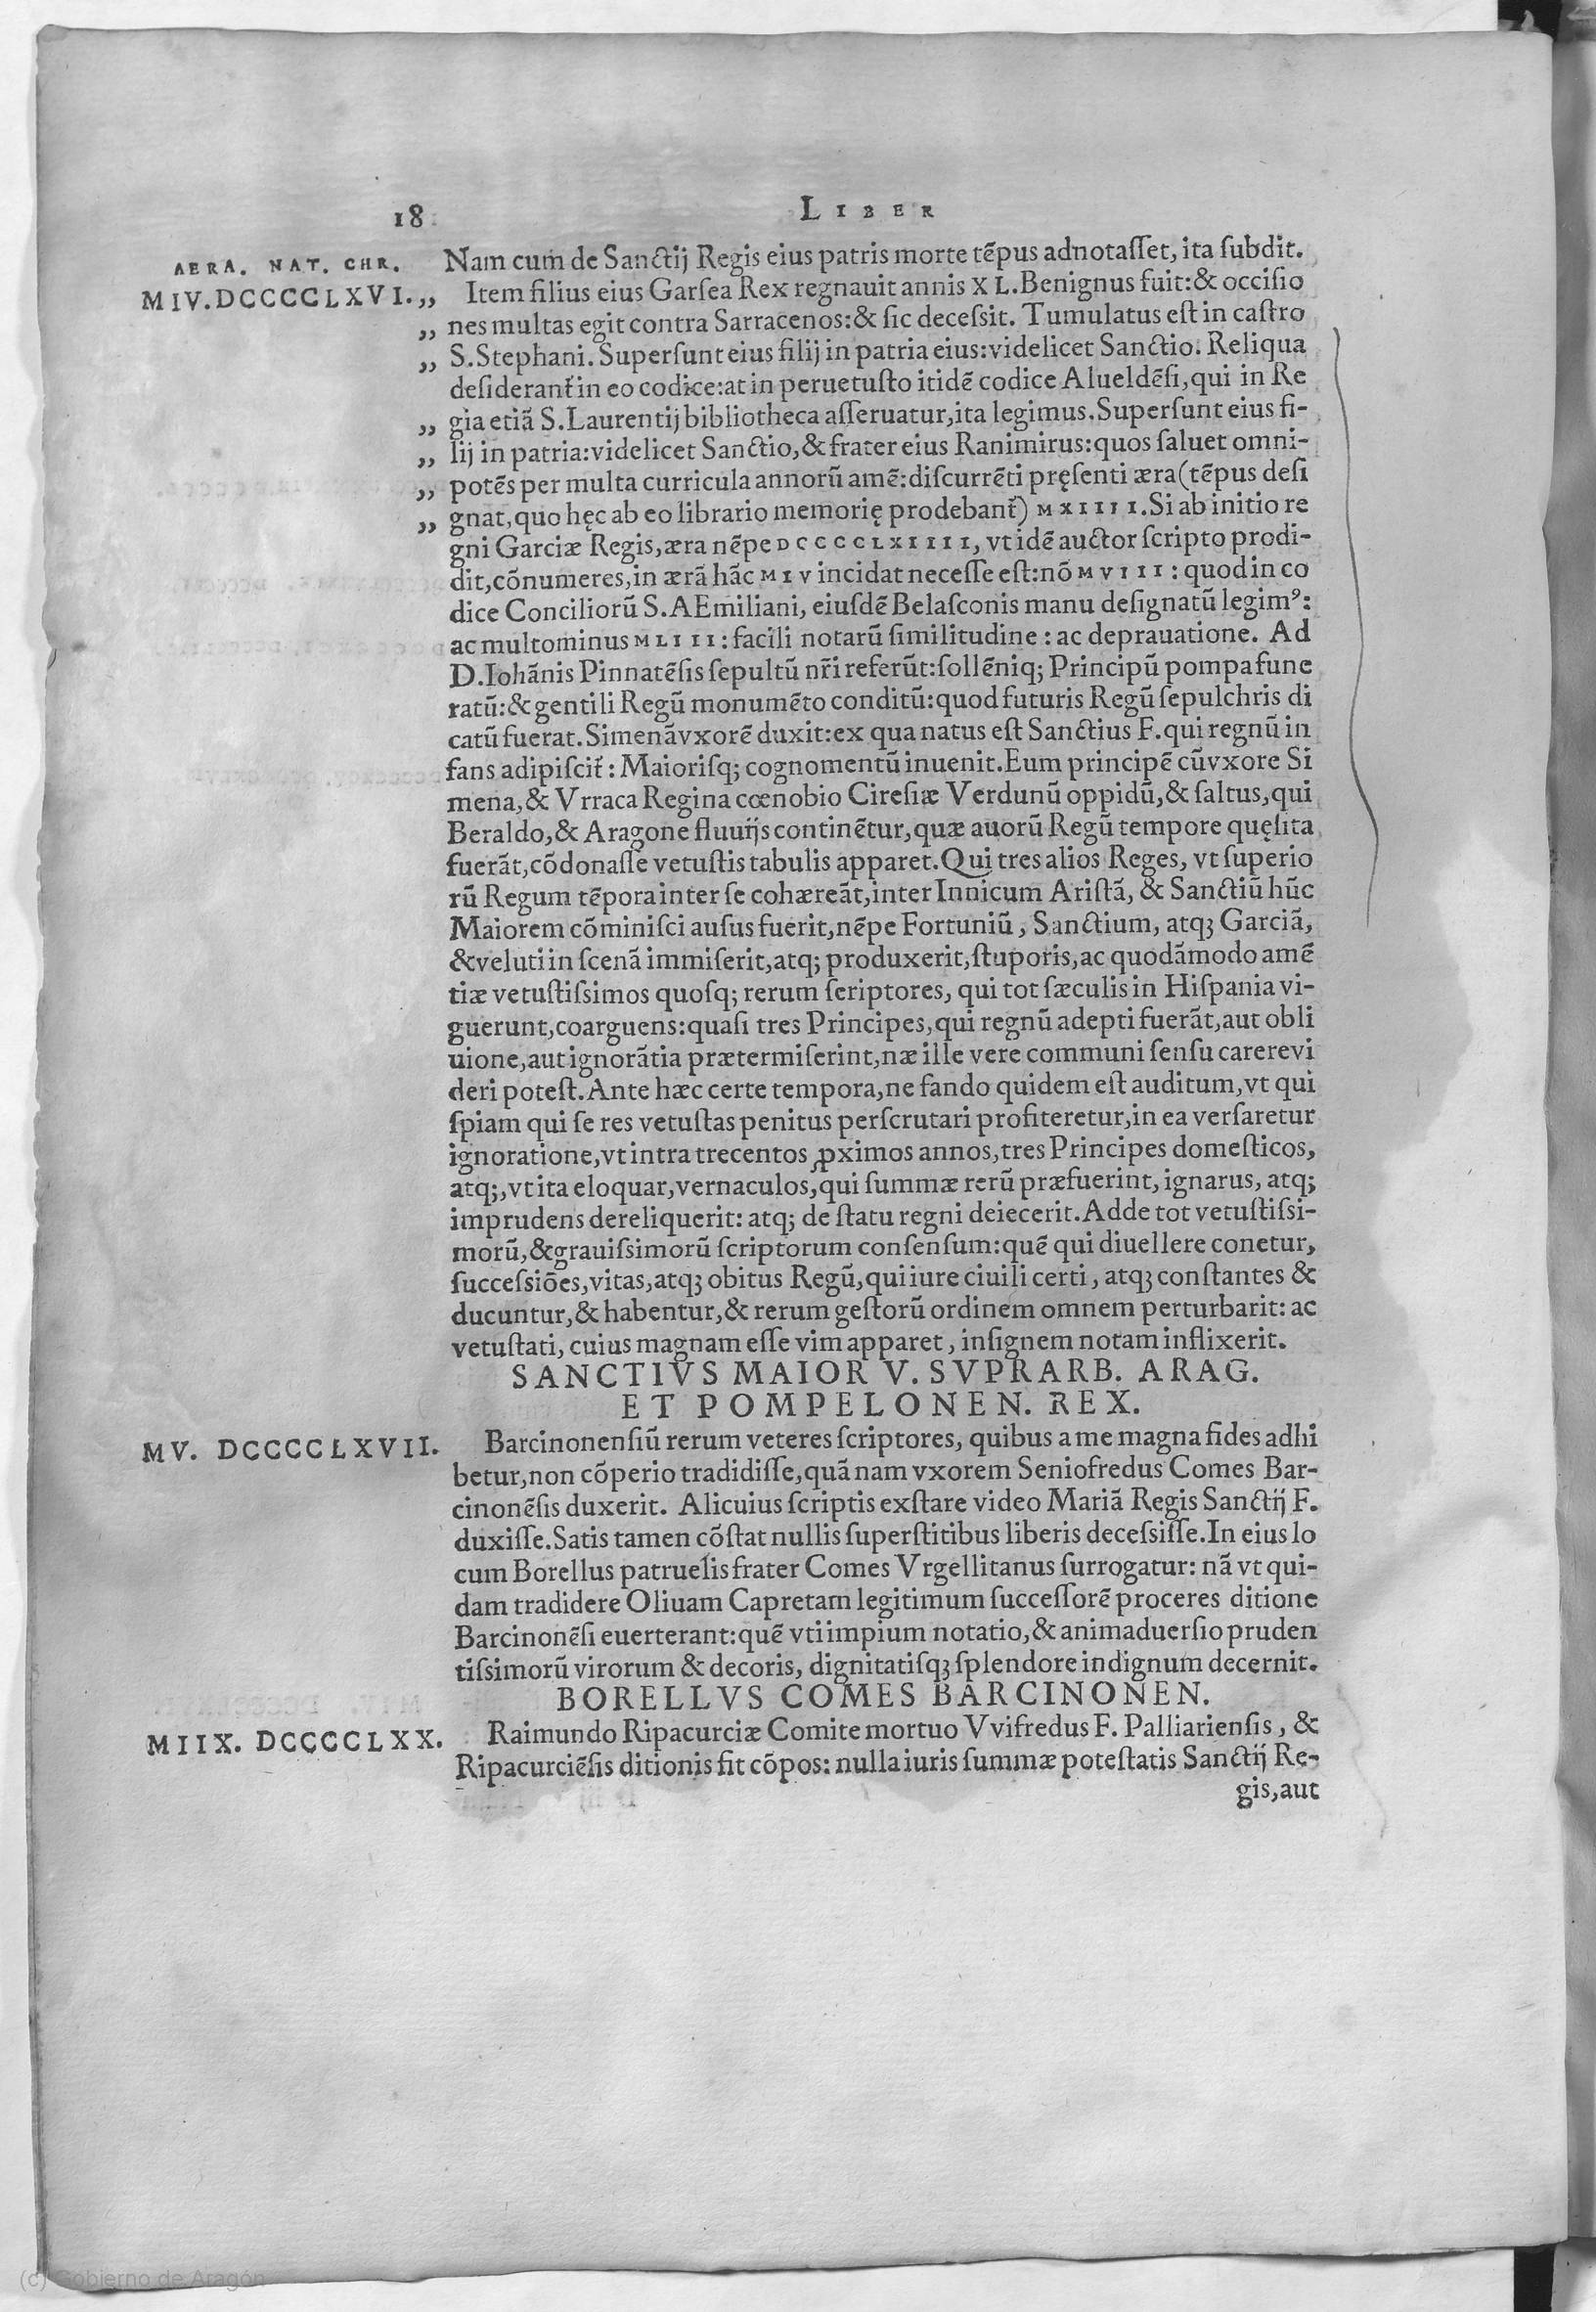 18 LIBER
AERA. NAT. CHR. Nam cum de Sanctij Regis eius patris morte tẽpus adnotaſſet, ita ſubdit.
MIV. DCCCCLXVI. ,, Item filius eius Garſea Rex regnauit annis XL. Benignus fuit: & occiſio
,, nes multas egit contra Sarracenos: & ſic deceſsit. Tumulatus eſt in caſtro
,, S. Stephani. Superſunt eius filij in patria eius: videlicet Sanctio. Reliqua
deſiderant᷑ in eo codice: at in peruetuſto itidẽ codice Alueldẽſi, qui in Re
,, gia etiã S. Laurentij bibliotheca aſſeruatur, ita legimus. Superſunt eius fi-
,, lij in patria: videlicet Sanctio, & frater eius Ranimirus: quos ſaluet omni-
,, potẽs per multa curricula annorũ amẽ: diſcurrẽti pręſenti æra (tẽpus deſi
,, gnat, quo hęc ab eo librario memorię prodebant᷑) MXIIII. Si ab initio re
gni Garciæ Regis, æra nẽpe DCCCCLXIIII, vt idẽ auctor ſcripto prodi-
dit, cõnumeres, in ærã hãc MIV incidat neceſſe eſt: nõ MVIII: quod in co
dice Conciliorũ S. AEmiliani, eiuſdẽ Belaſconis manu deſignatũ legimꝰ:
ac multominus MLIII: facili notarũ ſimilitudine: ac deprauatione. Ad
D. Iohãnis Pinnatẽſis ſepultũ nr̃i referũt: ſollẽniq; Principũ pompa fune
ratũ: & gentili Regũ monumẽto conditũ: quod futuris Regũ ſepulchris di
catũ fuerat. Simenã vxorẽ duxit: ex qua natus eſt Sanctius F. qui regnũ in
fans adipiſcit᷑: Maioriſq; cognomentũ inuenit. Eum principẽ cũ vxore Si
mena, & Vrraca Regina cœnobio Cireſiæ Verdunũ oppidũ, & ſaltus, qui
Beraldo, & Aragone fluuijs continẽtur, quæ auorũ Regũ tempore quęſita
fuerãt, cõdonaſſe vetuſtis tabulis apparet. Qui tres alios Reges, vt ſuperio
rũ Regum tẽpora inter ſe cohæreãt, inter Innicum Ariſtã, & Sanctiũ hũc
Maiorem cõminiſci auſus fuerit, nẽpe Fortuniũ, Sanctium, atqꝫ Garciã,
& veluti in ſcenã immiſerit, atq; produxerit, ſtuporis, ac quodãmodo amẽ
tiæ vetuſtiſsimos quoſq; rerum ſcriptores, qui tot ſæculis in Hiſpania vi-
guerunt, coarguens: quaſi tres Principes, qui regnũ adepti fuerãt, aut obli
uione, aut ignorãtia prætermiſerint, næ ille vere communi ſenſu carere vi
deri poteſt. Ante hæc certe tempora, ne fando quidem eſt auditum, vt qui
ſpiam qui ſe res vetuſtas penitus perſcrutari profiteretur, in ea verſaretur
ignoratione, vt intra trecentos ꝓximos annos, tres Principes domeſticos,
atq;, vt ita eloquar, vernaculos, qui ſummæ rerũ præfuerint, ignarus, atq;
imprudens dereliquerit: atq; de ſtatu regni deiecerit. Adde tot vetuſtiſsi-
morũ, & grauiſsimorũ ſcriptorum conſenſum: quẽ qui diuellere conetur,
ſucceſsiões, vitas, atqꝫ obitus Regũ, qui iure ciuili certi, atqꝫ conſtantes &
ducuntur, & habentur, & rerum geſtorũ ordinem omnem perturbarit: ac
vetuſtati, cuius magnam eſſe vim apparet, inſignem notam inflixerit.
SANCTIVS MAIOR V. SVPRARB. ARAG.
ET POMPELONEN. REX.
MV. DCCCCLXVII. Barcinonenſiũ rerum veteres ſcriptores, quibus a me magna fides adhi
betur, non cõperio tradidiſſe, quã nam vxorem Seniofredus Comes Bar-
cinonẽſis duxerit. Alicuius ſcriptis exſtare video Mariã Regis Sanctij F.
duxiſſe. Satis tamen cõſtat nullis ſuperſtitibus liberis deceſsiſſe. In eius lo
cum Borellus patruelis frater Comes Vrgellitanus ſurrogatur: nã vt qui-
dam tradidere Oliuam Capretam legitimum ſucceſſorẽ proceres ditione
Barcinonẽſi euerterant: quẽ vti impium notatio, & animaduerſio pruden
tiſsimorũ virorum & decoris, dignitatiſqꝫ ſplendore indignum decernit.
BORELLVS COMES BARCINONEN.
MIIX. DCCCCLXX. Raimundo Ripacurciæ Comite mortuo Vvifredus F. Palliarienſis, &
Ripacurciẽſis ditionis fit cõpos: nulla iuris ſummæ poteſtatis Sanctij Re-
gis, aut
(c) Gobierno de Aragón